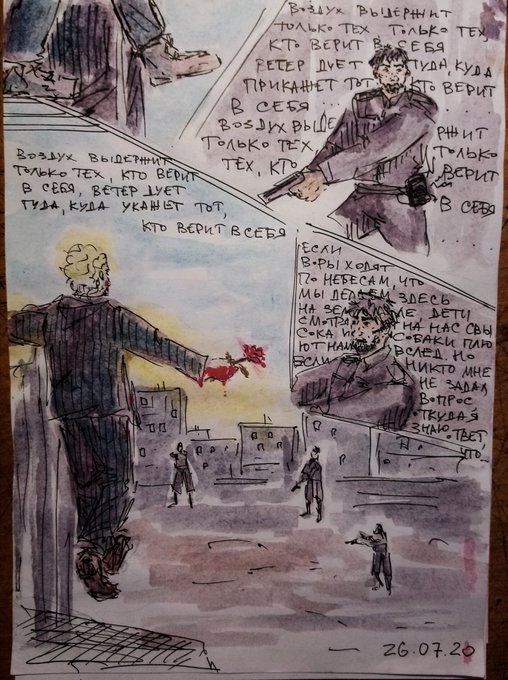 ВОЗДУХ ВЫДЕРЖИТ
ТОЛЬКО ТЕХ, ТОЛЬКО ТЕХ,
КТО ВЕРИТ В СЕБЯ
ВЕТЕР ДУЕТ ТУДА, КУДА
ПРИКАЖЕТ ТОТ КТО ВЕРИТ
В СЕБЯ ...
ВОЗДУХ ВЫДЕ РЖИТ
ТОЛЬКО ТЕХ ТОЛЬКО
ТЕХ, КТО ВЕРИТ
В СЕБЯ
ВОЗДУХ ВЫДЕРЖИТ
ТОЛЬКО ТЕХ, КТО ВЕРИТ
В СЕБЯ, ВЕТЕР ДУЕТ
ТУДА, КУДА УКАЖЕТ ТОТ,
КТО ВЕРИТ В СЕБЯ
ЕСЛИ
ВОРЫ ХОДЯТ
ПО НЕБЕСАМ, ЧТО
МЫ ДЕЛАЕМ ЗДЕСЬ
НА ЗЕМ ЛЕ, ДЕТИ
НА НАС СВЫ
СОКА И СОБАКИ ПЛЮ
ЮТ НАМ ВСЛЕД, НО
ЕСЛИ НИКТО МНЕ
НЕ ЗАДАЛ
ВОПРОС
ОТКУДА Я
ЗНАЮ ОТВЕТ,
ЧТО
26.07.20